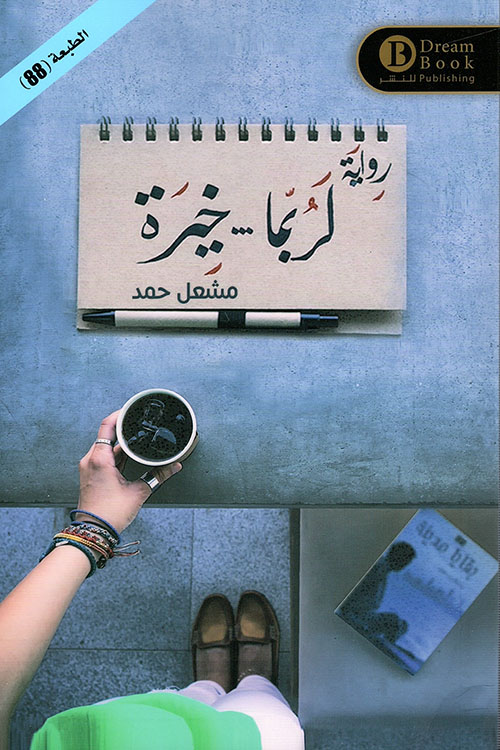 الطبعة (88)
Dream
Book
Publishing للنشر
رواية
لَرُبّما ... خيرة
مشعل حمد